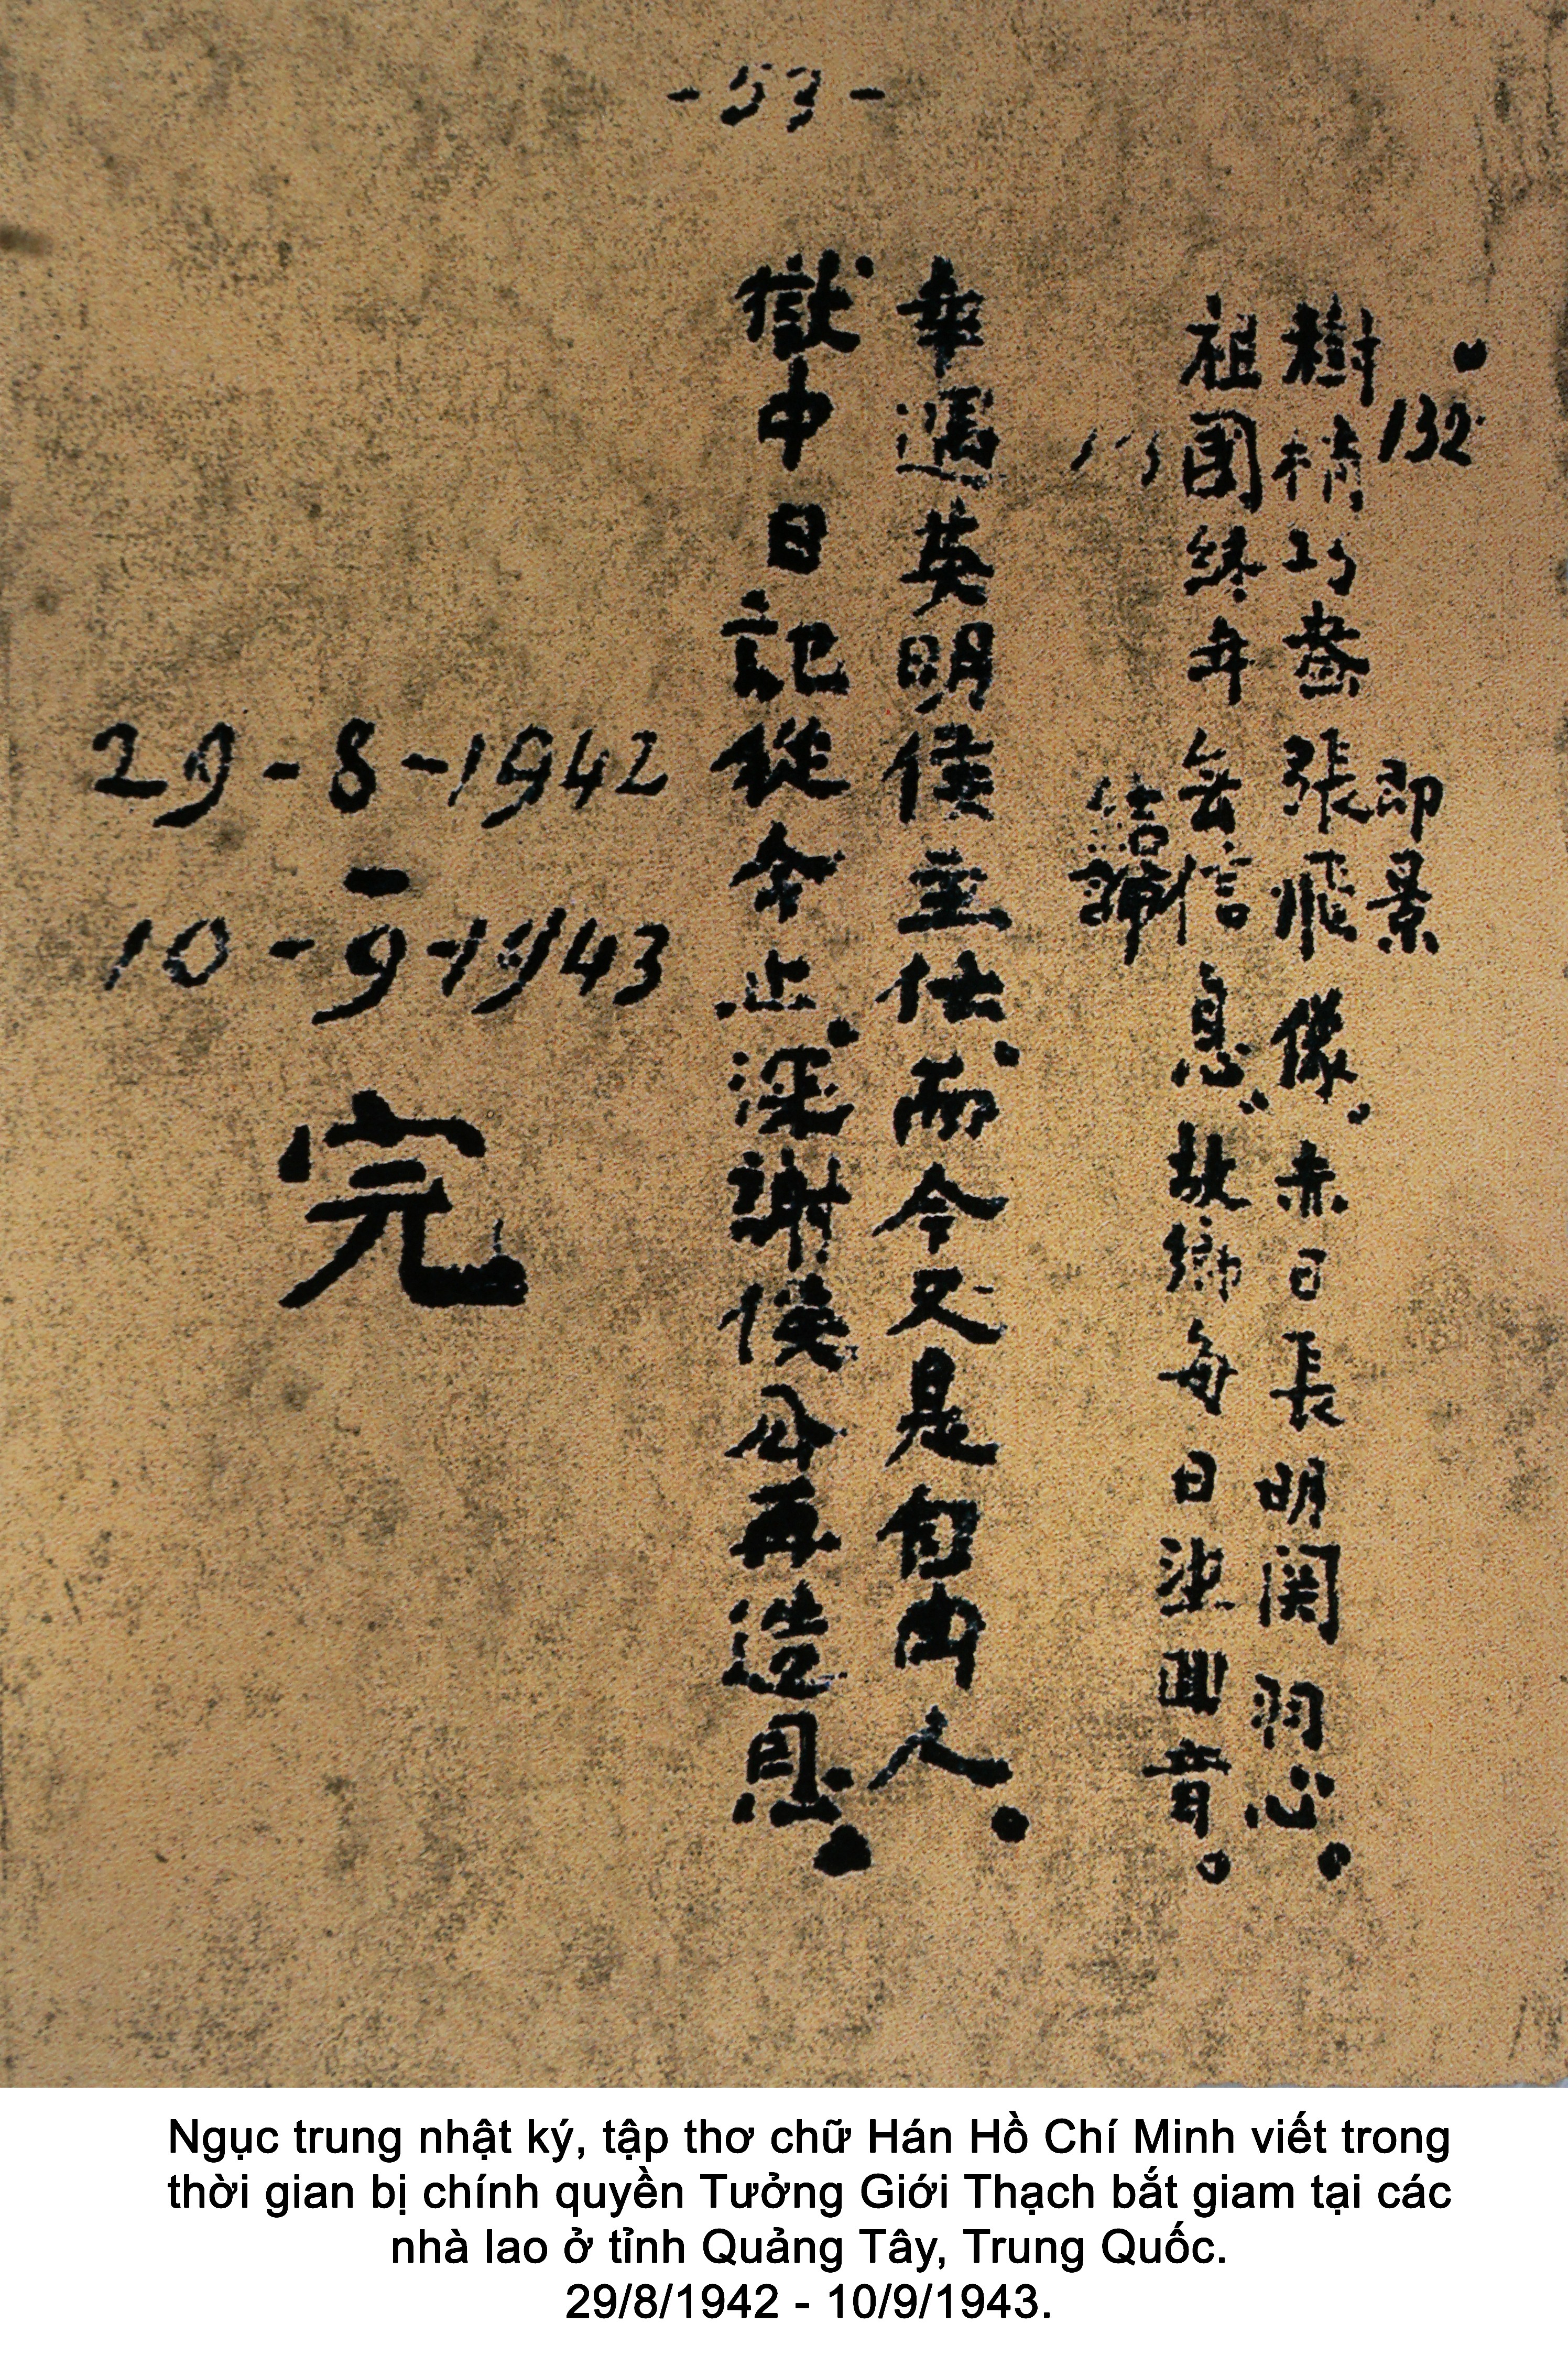 -53-
132 即景
樹梢巧畫張飛像，赤日長明関羽心。
祖國終年無信息，故鄉每日望回音。
結論
幸遇英明侯主任、而今又是自由人。
獄中日記從今止、深謝侯公再造恩。
29-8-1942
-
10-9-1943
完
Ngục trung nhật ký, tập thơ chữ Hán Hồ Chí Minh viết trong
thời gian bị chính quyền Tưởng Giới Thạch bắt giam tại các
nhà lao ở tỉnh Quảng Tây, Trung Quốc.
29/8/1942 - 10/9/1943.